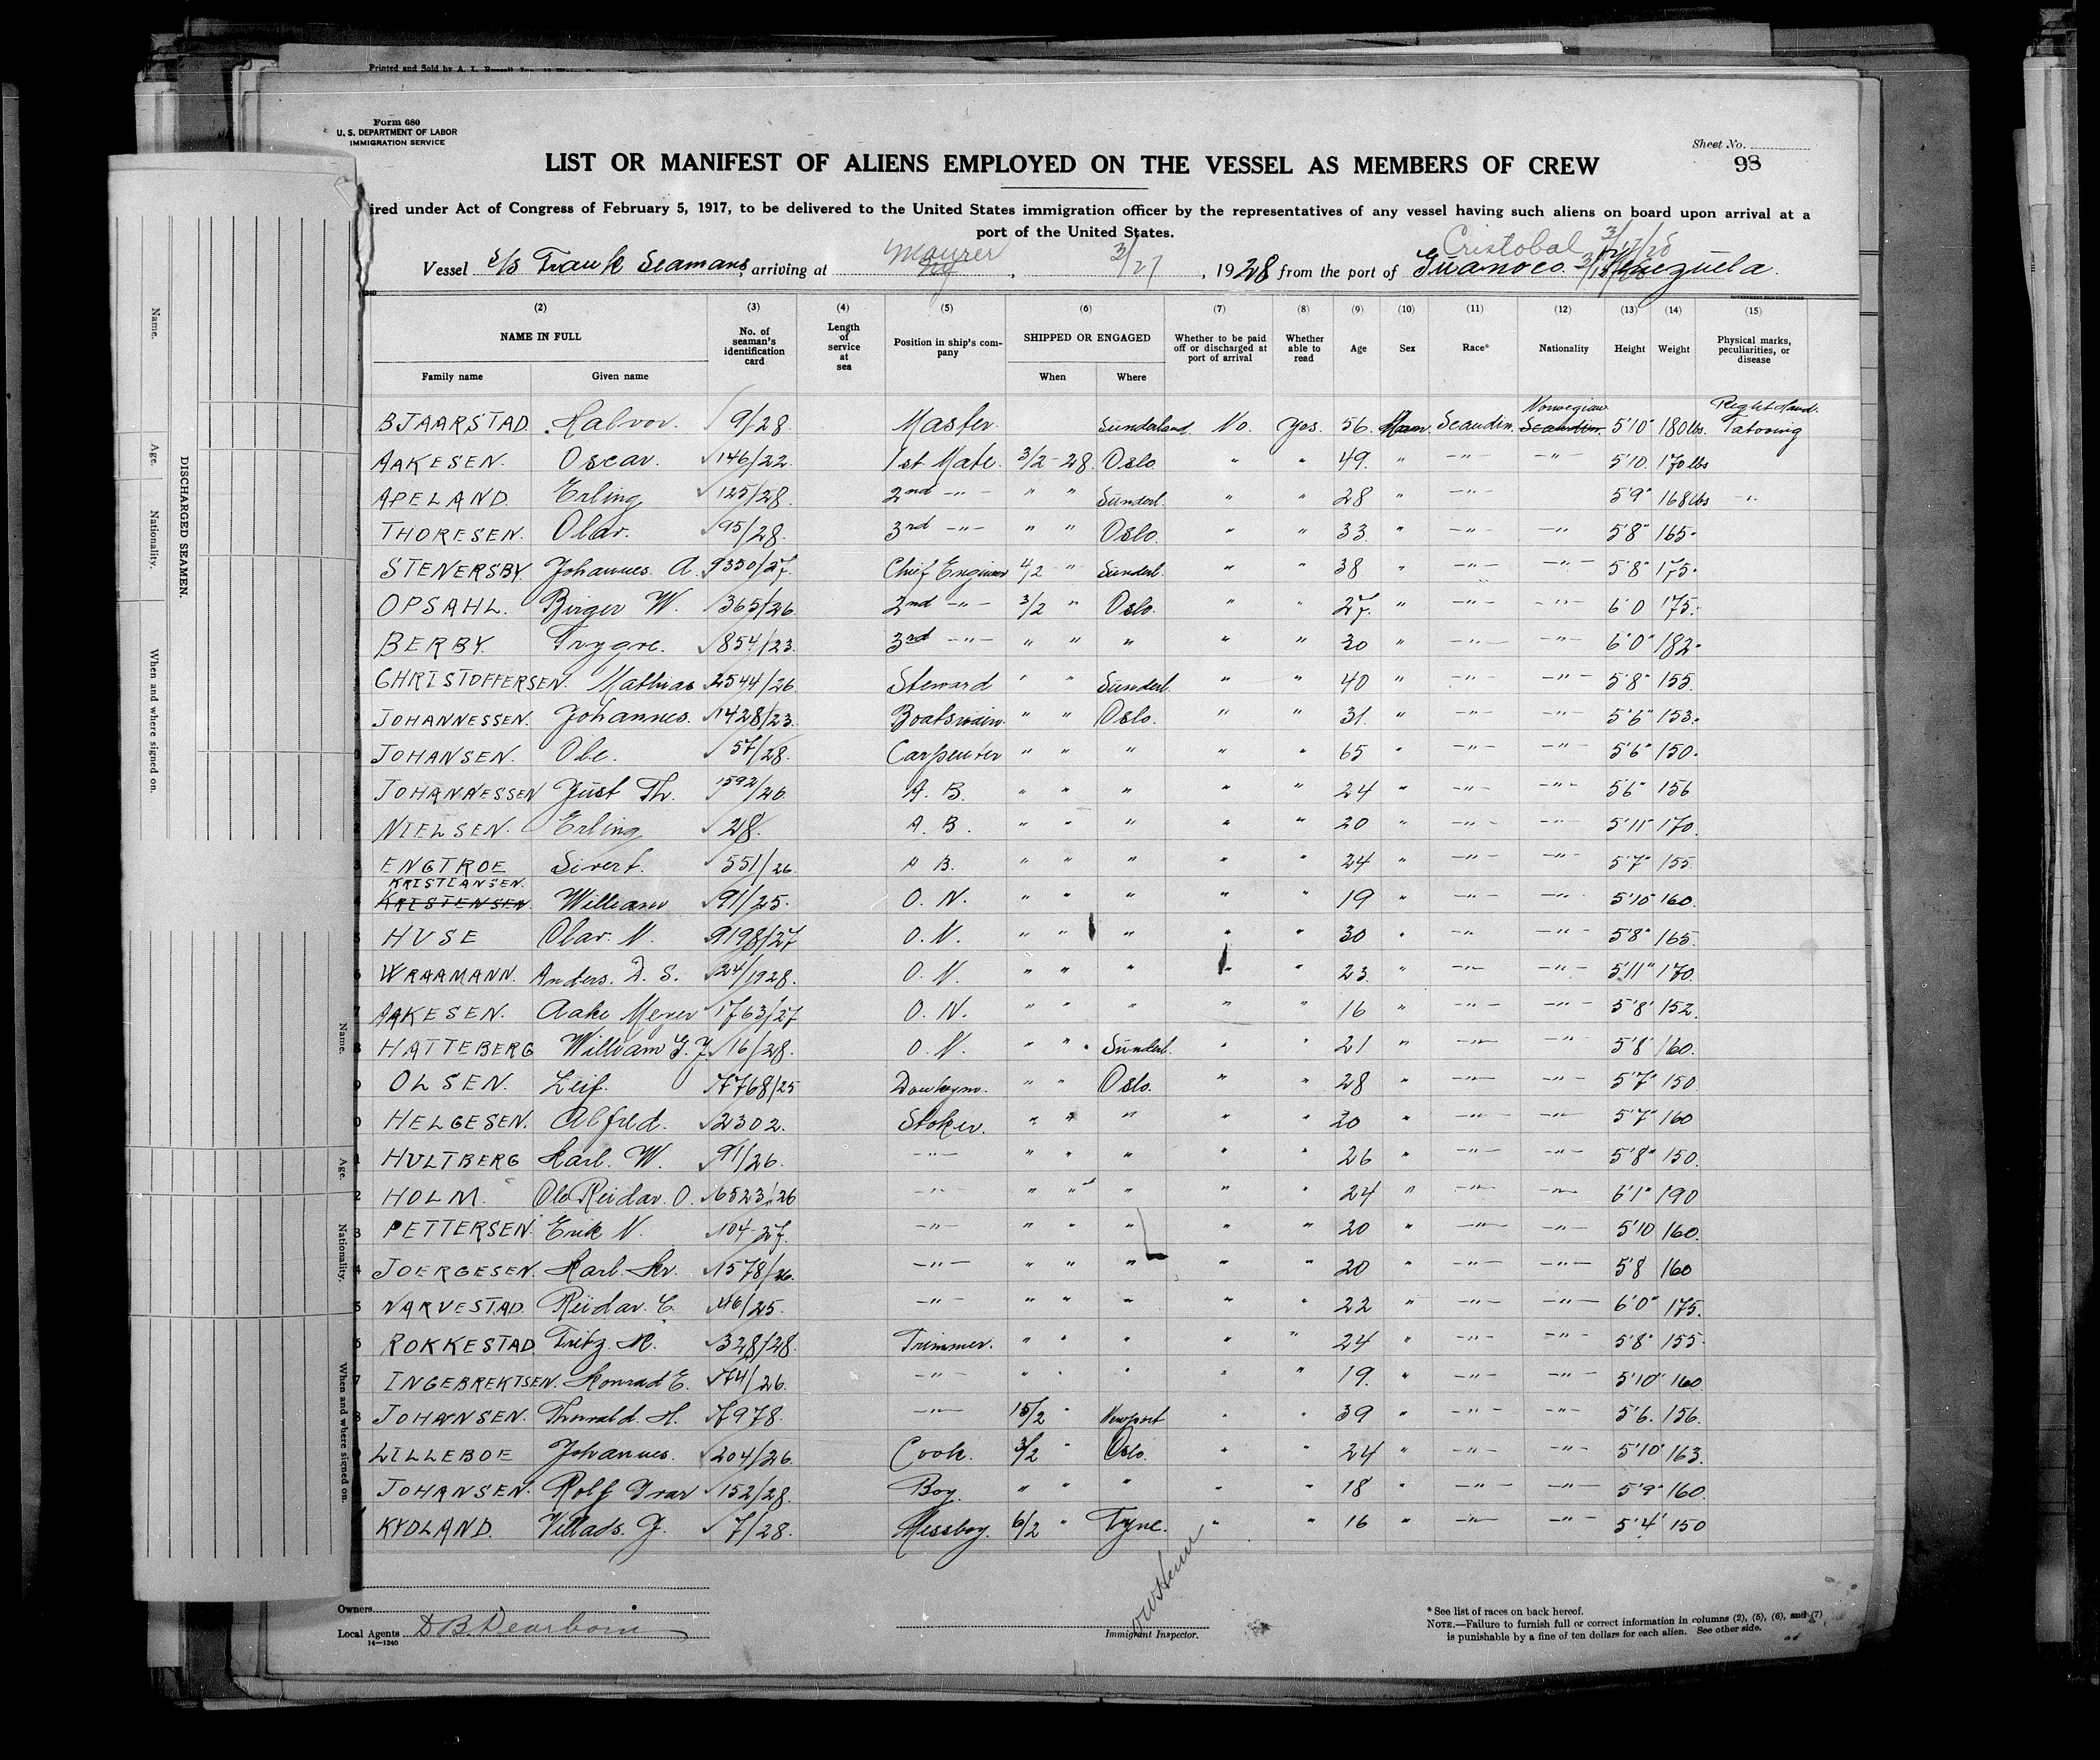 Printed and Sold by A. L.
Form 680
U. S. DEPARTMENT OF LABOR
IMMIGRATION SERVICE
Sheet No.
98
LIST OR MANIFEST OF ALIENS EMPLOYED ON THE VESSEL AS MEMBERS OF CREW
ired under Act of Congress of February 5, 1917, to be delivered to the United States immigration officer by the representatives of any vessel having such aliens on board upon arrival at a
port of the United States.
Cristobal
Vessel S/S Frank Seamans, arriving at Maurer, 3/27, 1928 from the port of Guanoco Venezuela.
(2) (3) (4) (5) (6) (7) (8) (9) (10) (11) (12) (13) (14) (15)
NAME IN FULL No. of seaman's identification card Length of service at sea Position in ship's company SHIPPED OR ENGAGED Whether to be paid off or discharged at port of arrival Whether able to read Age Sex Race* Nationality Height Weight Physical marks, peculiarities, or disease
Family name Given name When Where
Norwegian Right Hand.
BJAARSTAD Halvor. 9/28 Master Sunderland No. Yes. 56. Scandin. Scandin. 5'10" 180 lbs. Tatooing
AAKESEN. Oscar. 146/22. 1st Mate. 3/2-28. Oslo. " " 49. " -"- -"- 5'10. 170 lbs
APELAND. Erling 125/28. 2nd -"- " " Sunderl. " " 28 " -"- 5'9" 168 lbs -"-
THORESEN. Olav. 95/28. 3rd -"- " " Oslo. " " 33 " -"- -"- 5'8" 165"
STENERSBY. Johannes A. 9350/27. Chief Engineer 4/2 " Sunderl. " " 38 " -"- -"- 5'8" 175"
OPSAHL. Birger W. 365/26. 2nd -"- 3/2 " Oslo. " " 27. " -"- -"- 6'0 175.
BERBY. Trygve. 854/23. 3rd -"- " " " " " 30 " -"- -"- 6'0" 182"
CHRISTOFFERSEN. Mathias 2544/26. Steward " " Sunderl. " " 40 " -"- -"- 5'8" 155.
JOHANNESSEN. Johannes. 1428/23. Boatswain. " " Oslo. " " 31. " -"- -"- 5'6" 153.
JOHANSEN. Ole. 57/28. Carpenter " " " " " 65 " -"- -"- 5'6" 150.
JOHANNESSEN Just Th. 1592/26. A. B. " " " " " 24 " -"- -"- 5'6" 156
NIELSEN. Erling 28. A. B. " " " " " 20 " -"- -"- 5'11" 170.
ENGTROE Sivert. 551/26 A B. " " " " " 24 " -"- -"- 5'7" 155.
KRISTIANSEN.
KRISTENSEN William 91/25. O. N. " " " " " 19 " -"- -"- 5'10" 160.
HUSE Olav. N. 9198/27 O. N. " " " " " 30 " -"- -"- 5'8" 165.
WRAAMANN. Anders. D. S. 24/1928. O. N. " " " " " 23. " -"- -"- 5'11" 170.
AAKESEN. Aake Meyer 1763/27 O. N. " " " " " 16 " -"- -"- 5'8" 152.
HATTEBERG William G. J. 16/28. O. N. " " Sunderl. " " 21 " -"- -"- 5'8" 160.
OLSEN. Leif. 7768/25 Donkeym. " " Oslo. " " 28 " -"- -"- 5'7" 150
HELGESEN. Alfred. 2302. Stoker. " " " " " 20 " -"- -"- 5'7" 160
HULTBERG Karl. W. 91/26. -"- " " " " " 26 " -"- -"- 5'8" 150.
HOLM. Ole Reidar. O. 6523/26 -"- " " " " " 24 " -"- -"- 6'1" 190
PETTERSEN. Erik N. 104-27. -"- " " " " " 20 " -"- -"- 5'10 160.
JOERGESEN. Karl. Kr. 1578/26. -"- " " " " " 20 " -"- -"- 5'8 160
NARVESTAD. Reidar. E. 46/25. -"- " " " " " 22 " -"- -"- 6'0" 175.
ROKKESTAD. Fritz. M. 328/28. Trimmer. " " " " " 24 " -"- -"- 5'8" 155
INGEBREKTSEN. Konrad E. 74/26. -"- " " " " " 19. " -"- -"- 5'10" 160
JOHANSEN. Thorvald. H. 7978. -"- 15/2 " Newport " " 39 " -"- -"- 5'6. 156.
LILLEBOE Johannes. 204/26. Cook. 3/2 " Oslo. " " 24 " -"- -"- 5'10" 163.
JOHANSEN. Rolf Ivar 152/28. Boy. " " " " " 18 " -"- -"- 5'9" 160.
KYDLAND. Villads. J. 7/28. Messboy. 6/2 " Tyne. " " 16 " -"- -"- 5'4" 150
Owners
Local Agents D B Dearborn
14—1240
Immigrant Inspector.
* See list of races on back hereof.
NOTE.—Failure to furnish full or correct information in columns (2), (5), (6), and (7)
is punishable by a fine of ten dollars for each alien. See other side.
DISCHARGED SEAMEN.
Name. Age. Nationality. When and where signed on.
Name. Age. Nationality. When and where signed on.